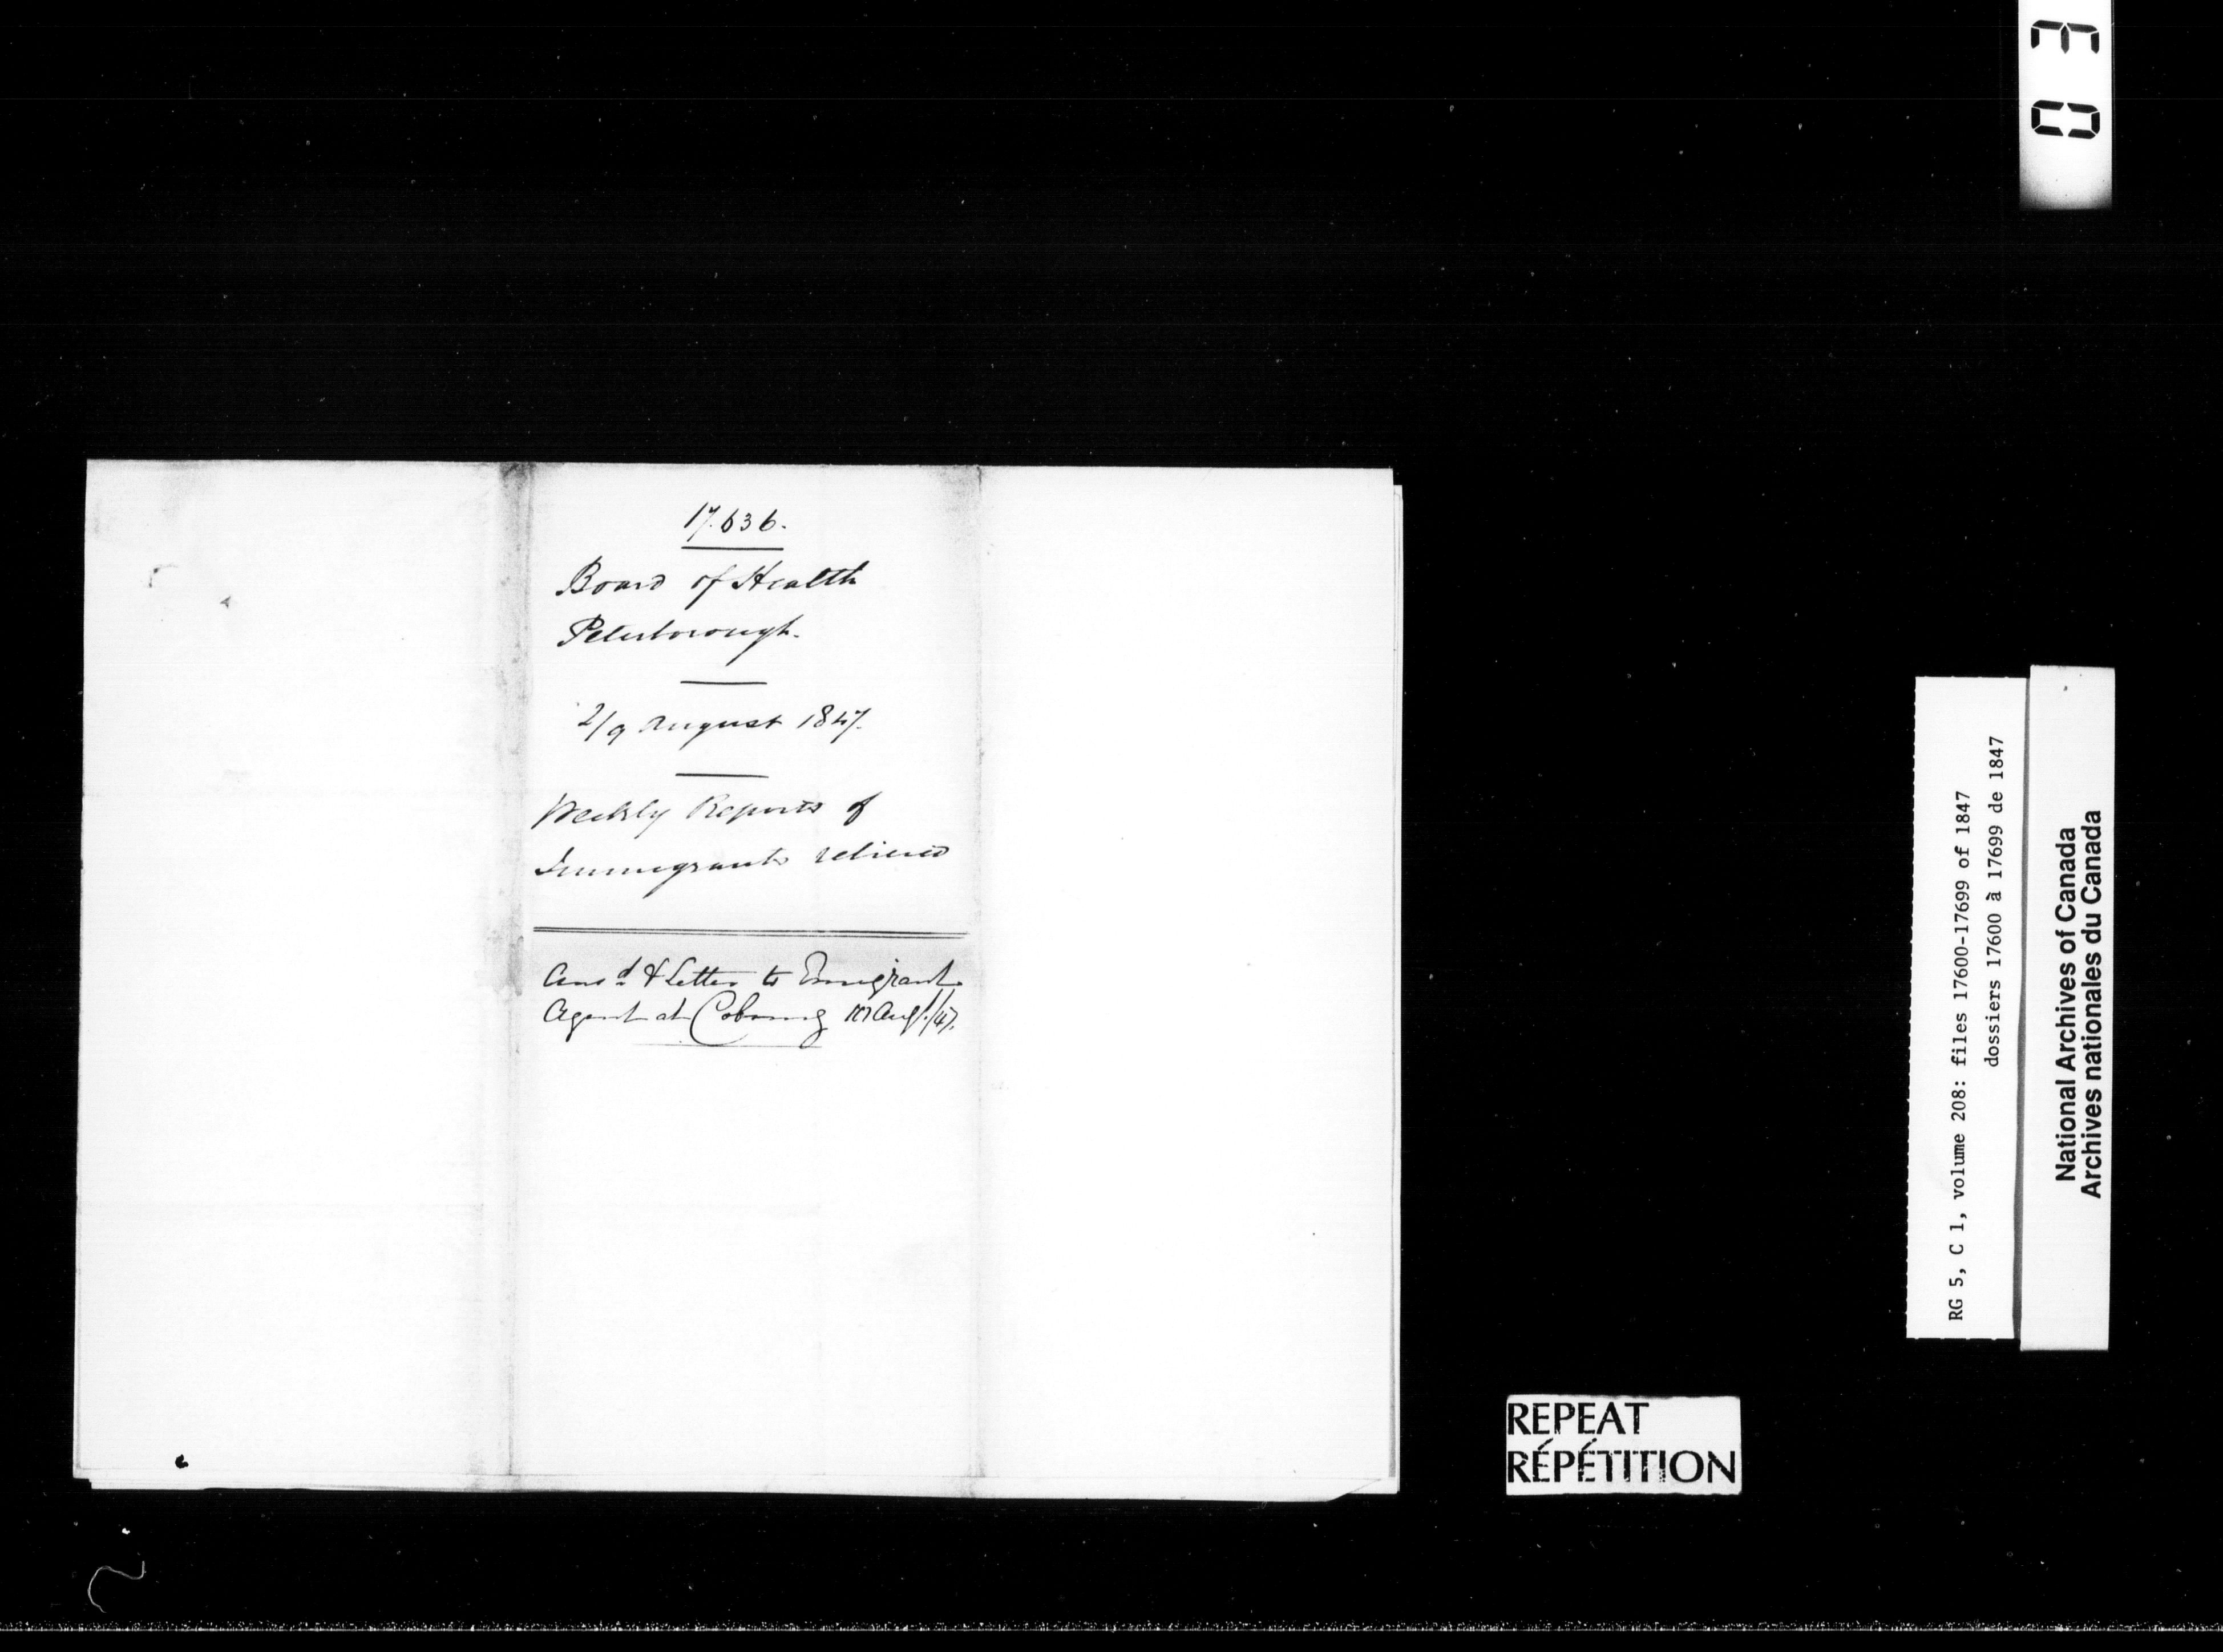 17.636.
Board of Health
Peterborough.
2/9 August 1847.
Weekly Reports of
Immigrants relieved
Ansd & Letter to Emigrant
Agent at Cobourg Augt./47.
03
RG 5, C 1, volume 208: files 17600-17699 of 1847
dossiers 17600 à 17699 de 1847
National Archives of Canada
Archives nationales du Canada
REPEAT
RÉPÉTITION